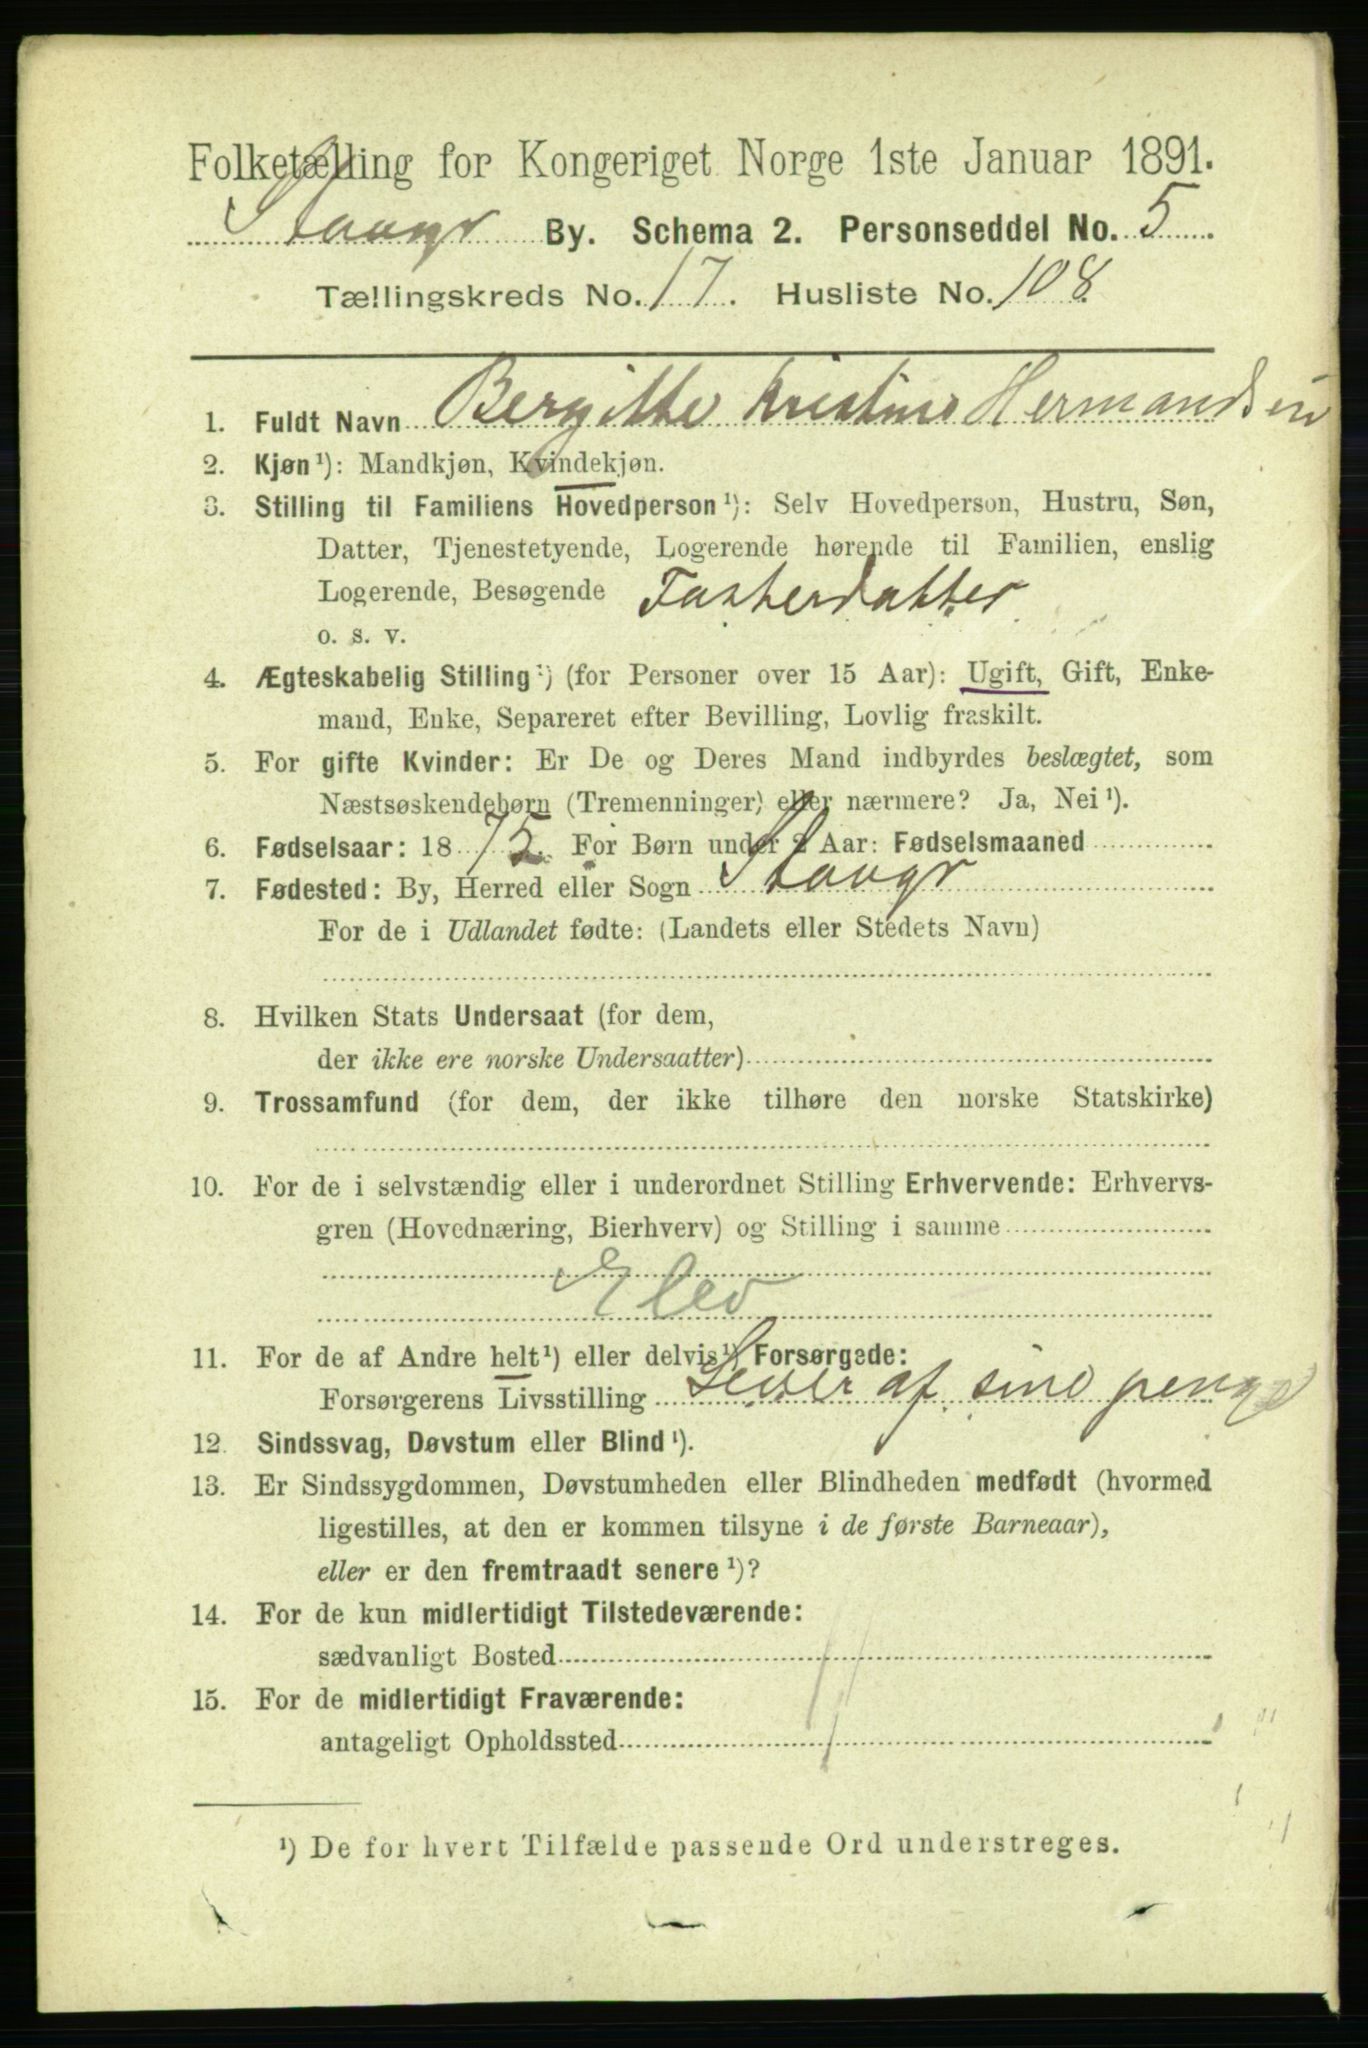 Folketælling for Kongeriget Norge 1ste Januar 1891.
Stavgr By. Schema 2. Personseddel No. 5
Tællingskreds No. 17. Husliste No. 108
1. Fuldt Navn Bergitte Kristine Hermandsen
2. Kjøn¹): Mandkjøn, Kvindekjøn.
3. Stilling til Familiens Hovedperson¹): Selv Hovedperson, Hustru, Søn,
Datter, Tjenestetyende, Logerende hørende til Familien, enslig
Logerende, Besøgende Fosterdatter
o. s. v.
4. Ægteskabelig Stilling¹) (for Personer over 15 Aar): Ugift, Gift, Enke-
mand, Enke, Separeret efter Bevilling, Lovlig fraskilt.
5. For gifte Kvinder: Er De og Deres Mand indbyrdes beslægtet, som
Næstsøskendebørn (Tremenninger) eller nærmere? Ja, Nei¹).
6. Fødselsaar: 1875. For Børn under 2 Aar: Fødselsmaaned
7. Fødested: By, Herred eller Sogn Stavgr
For de i Udlandet fødte: (Landets eller Stedets Navn)
8. Hvilken Stats Undersaat (for dem,
der ikke ere norske Undersaatter)
9. Trossamfund (for dem, der ikke tilhøre den norske Statskirke)
10. For de i selvstændig eller i underordnet Stilling Erhvervende: Erhvervs-
gren (Hovednæring, Bierhverv) og Stilling i samme
Elev
11. For de af Andre helt¹) eller delvis¹) Forsørgede:
Forsørgerens Livsstilling Lever af sine penge
12. Sindssvag, Døvstum eller Blind¹).
13. Er Sindssygdommen, Døvstumheden eller Blindheden medfødt (hvormed
ligestilles, at den er kommen tilsyne i de første Barneaar),
eller er den fremtraadt senere¹)?
14. For de kun midlertidigt Tilstedeværende:
sædvanligt Bosted
15. For de midlertidigt Fraværende:
antageligt Opholdssted
¹) De for hvert Tilfælde passende Ord understreges.